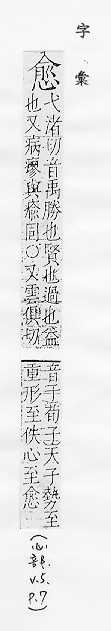 字彙
愈 弋渚切音禹勝也賢也過也益
也又病瘳與瘉同〇又雲俱切
音于荀子天子勢至
重形至佚心至愈
(心部. v.5. p.7)